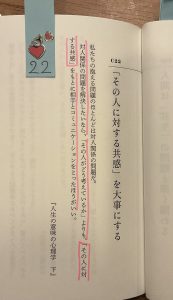 022
「その人に対する共感」を大事にする
私たちの抱える問題のほとんどは対人関係の問題だ。
対人関係の問題を解決したいなら、「その人がどう考えているか」よりも、「その人に対
する共感」をもとに相手とコミュニケーションをとったほうがいい。
『人生の意味の心理学 下』
22